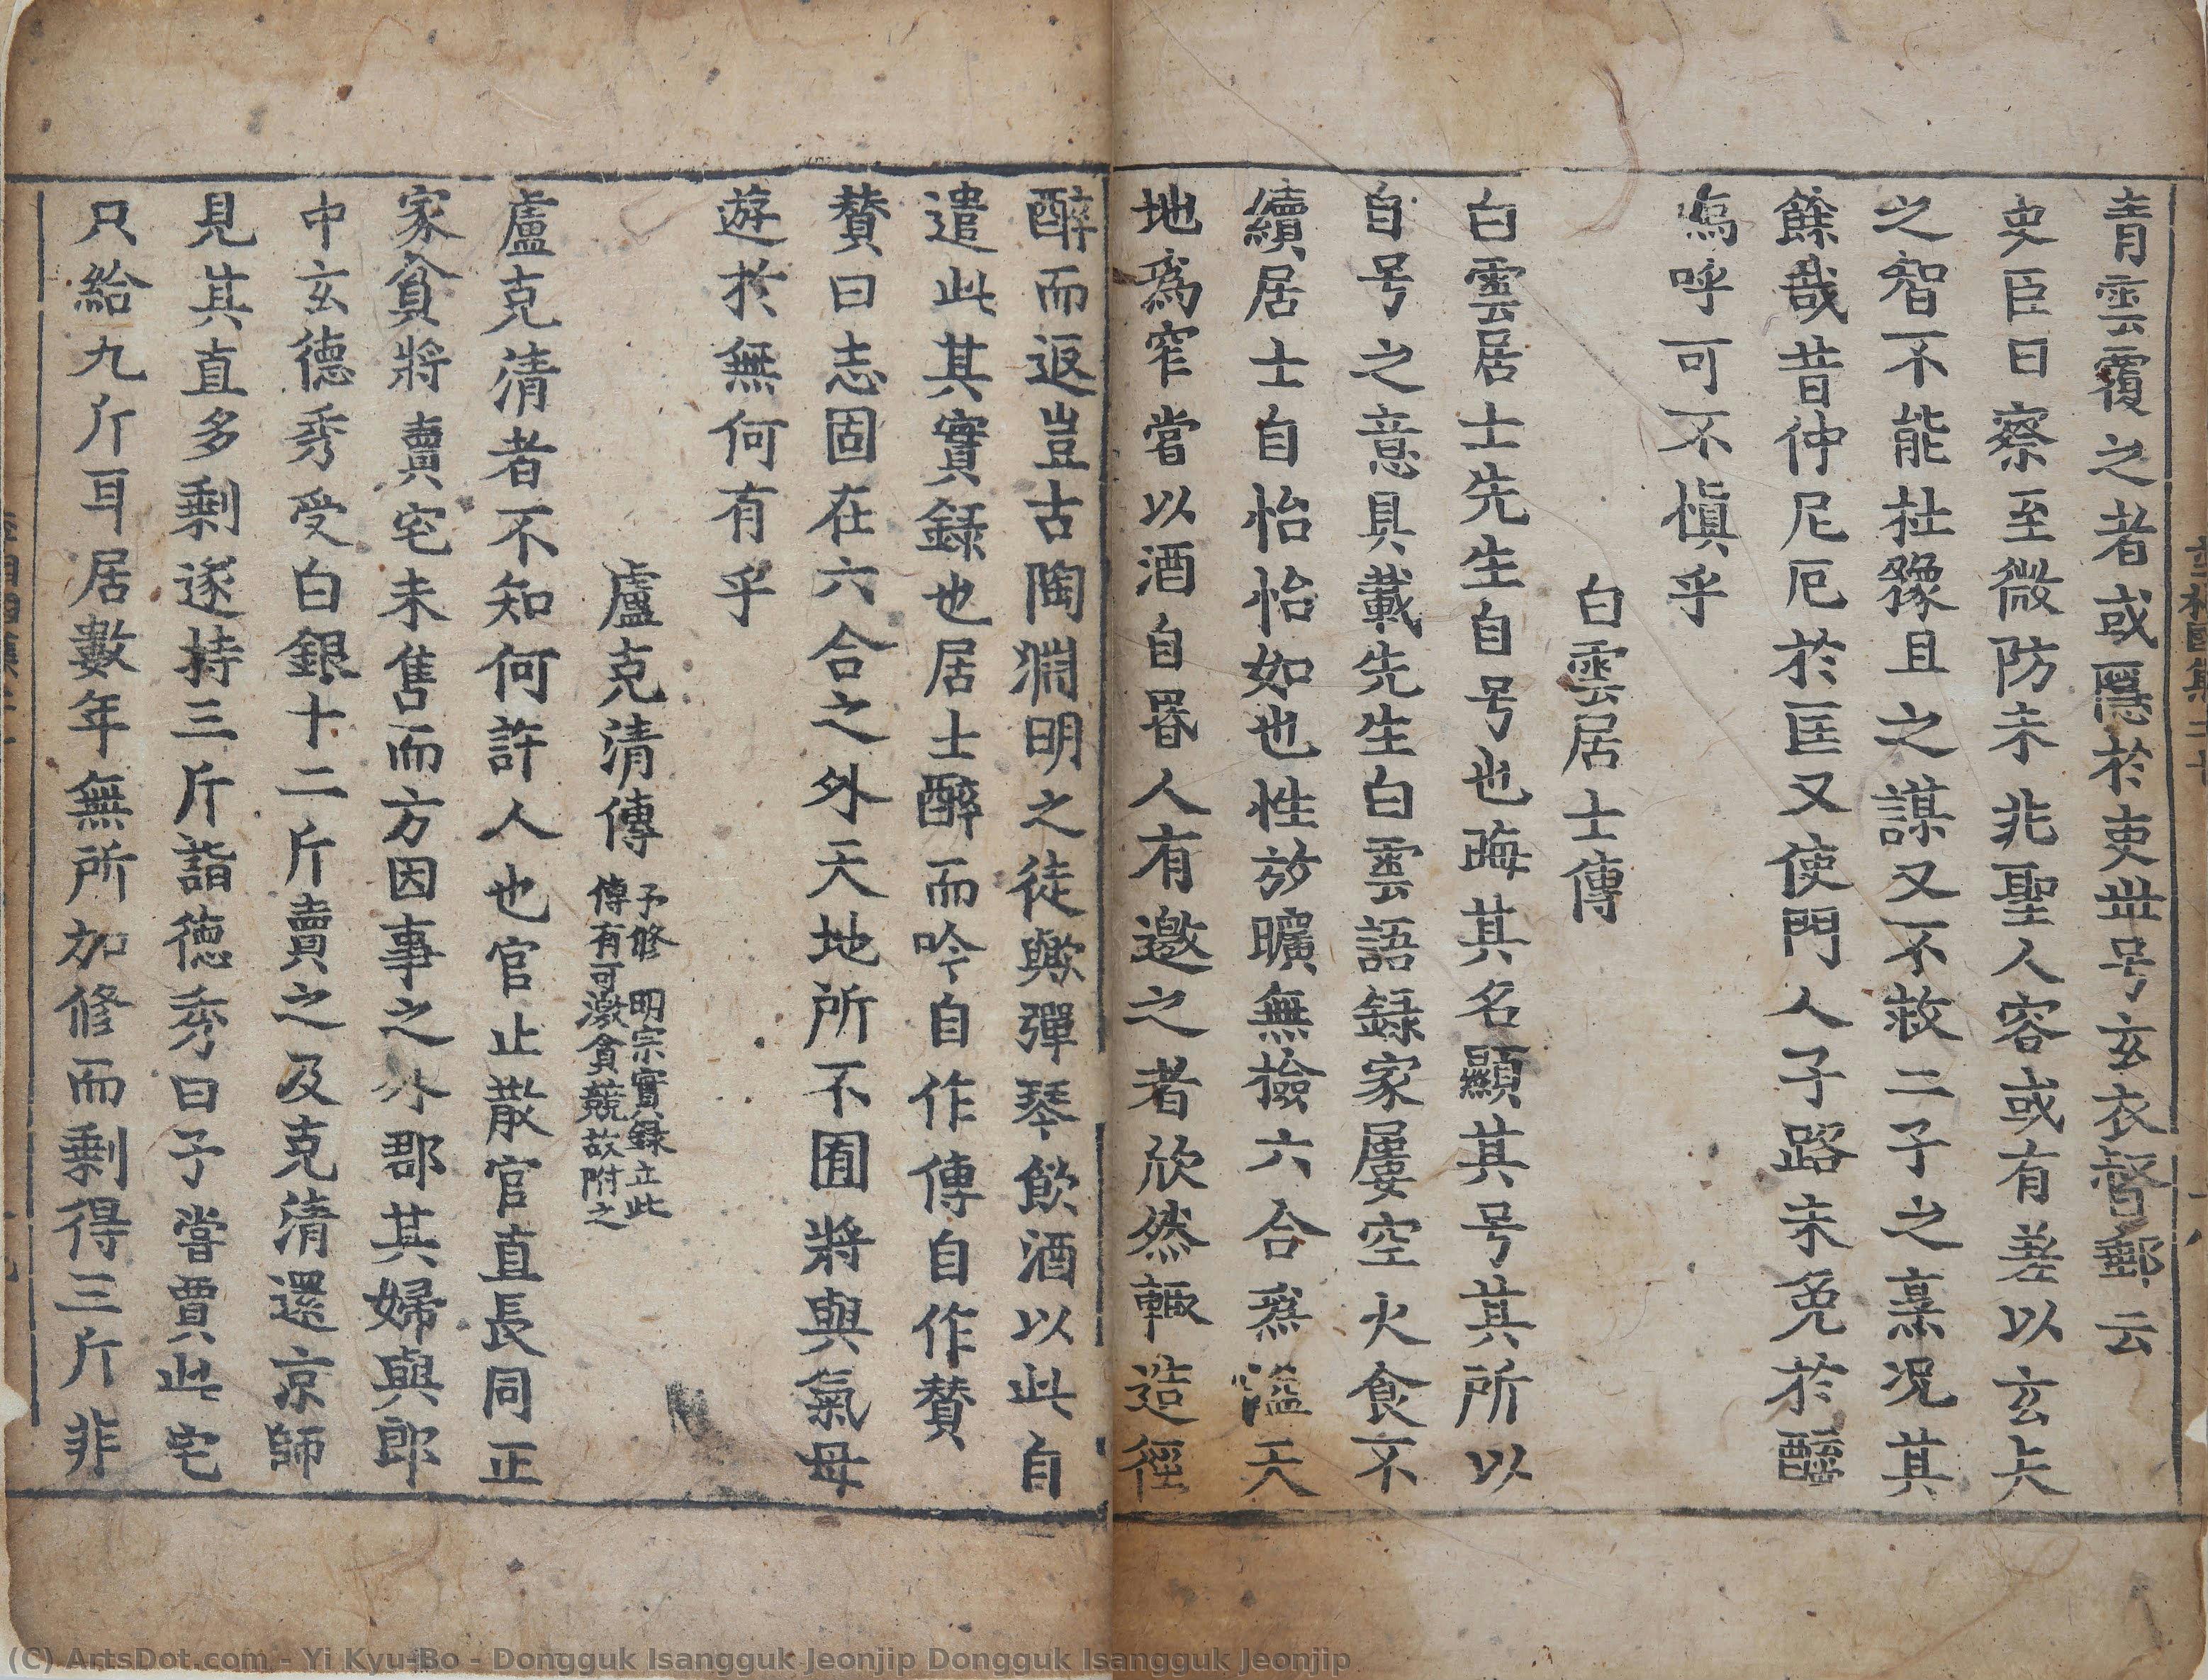 青雲覆之者或隱於吏世号玄衣督郵云
史臣曰察至微防未非聖人容或有差以玄夫
之智不能杜豫且之謀又不救二子之烹況其
餘哉昔仲尼厄於匡又使門人子路未免於醢
嗚呼可不愼乎
白雲居士傳
白雲居士先生自号也晦其名顯其号其所以
自号之意具載先生白雲語録家屢空火食不
續居士自怡怡如也性放曠無撿六合爲溢天
地爲窄嘗以酒自昬人有邀之者欣然輙造徑
醉而返豈古陶淵明之徒歟彈琴飮酒以此自
遣此其實録也居士醉而吟自作傳自作賛
賛曰志固在六合之外天地所不囿將與氣母
遊於無何有乎
盧克清傳
予修 明宗實録立此
傳有可激貪競故附之
盧克清者不知何許人也官止散官直長同正
家貧將賣宅未售而方因事之外郡其婦與郎
中玄德秀受白銀十二斤賣之及克清還京師
見其直多剩遂持三斤詣德秀曰予嘗買此宅
只給九斤耳居數年無所加修而剩得三斤非
(C) ArtsDot.com - Yi Kyu-Bo - Dongguk Isangguk Jeonjip Dongguk Isangguk Jeonjip